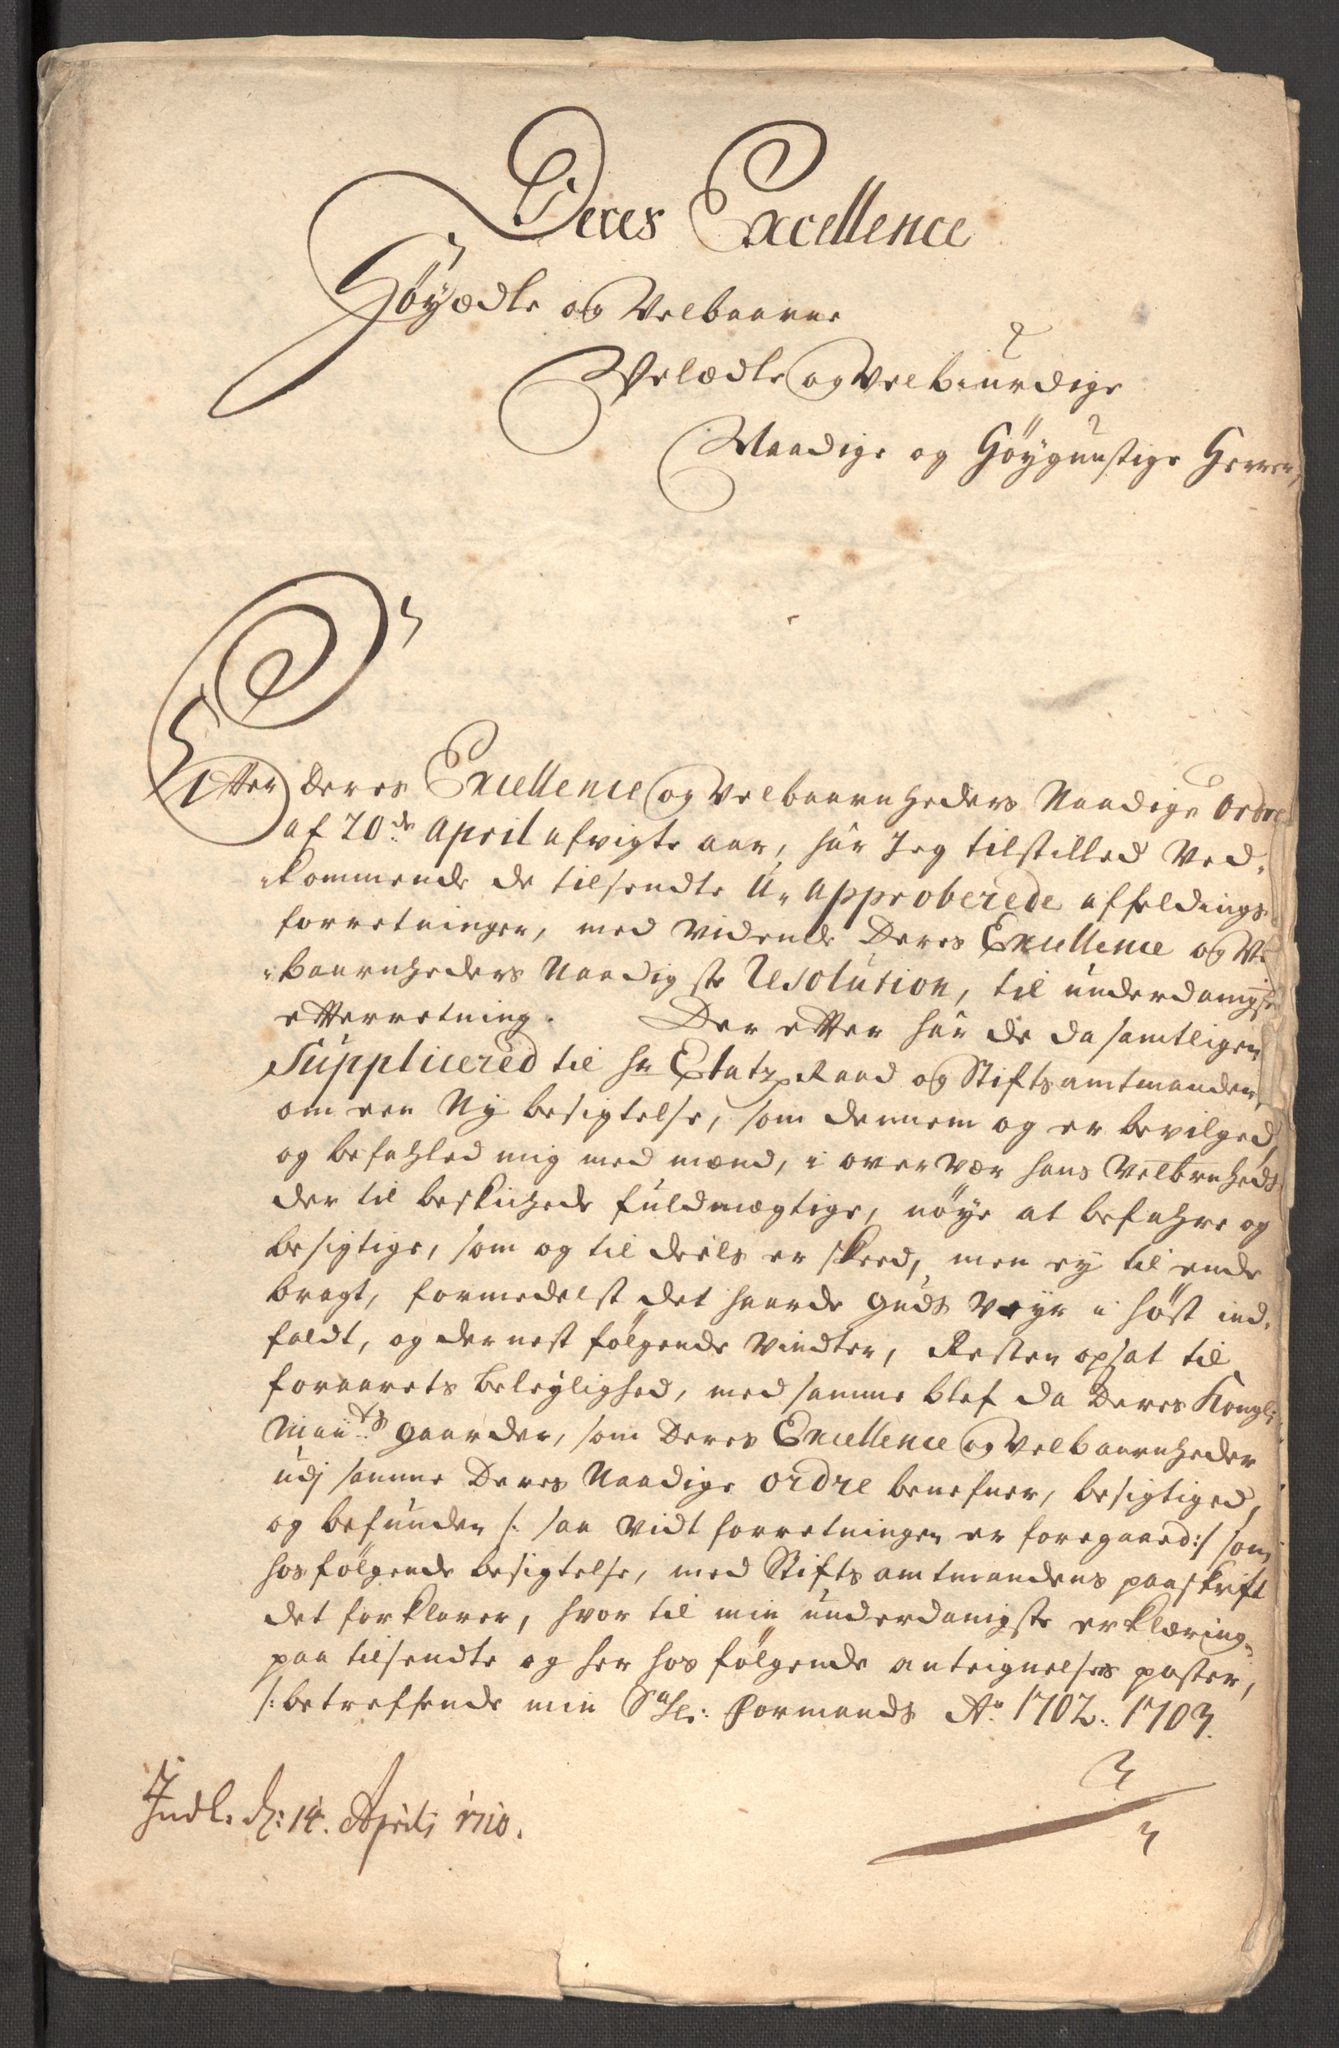 Deres Excellence
Höÿædle og Velbaarne
Velædle og Velbiurdige
Naadige og Höygunstige Herrer,
Efter Deres Excellence og Velbaarnheders Naadige Ordre
af 20de April afvigte aar, har Jeg tilstilled Ved-
kommende de tilsendte U-approberede affældings
forretninger, med vidende Deres Excellence og Vel-
baarnheders Naadigste Resolution, til underdanigste
efterretning. Der efter har de da samtligen
Supplicered til hr Etatz Raad og Stiftsamtmanden,
om een Ny besigtelse, som dennem og er bevilged,
og befahled mig med mænd, i overvær hans Velbrnheds
der til beskichede fuldmægtige, nöye at befahre og
besigtige, som og til deels er skeed, men ey til ende
bragt, formedelst det haarde Guds Veyr i höst ind-
faldt, og dernest fölgende Vindter, Resten opsat til
foraarets beleylighed, med samme blef da Deres Kongl:
Maÿts gaarder, som Deres Excellence og Velbaarnheder
udj samme Deres Naadige ordre benefner, besigtiged,
og befunden /: saa vidt forretningen er foregaaed :/ som
hosfölgende besigtelse, med Stiftsamtmandens paaskrift
det forklarer, hvor til min underdanigste erklæring
paa tilsendte og her hos fölgende antegnelses poster,
/: betreffende min Sal: Formands Ao. 1702. 1703.
Indl. d: 14. Aprili 1710.